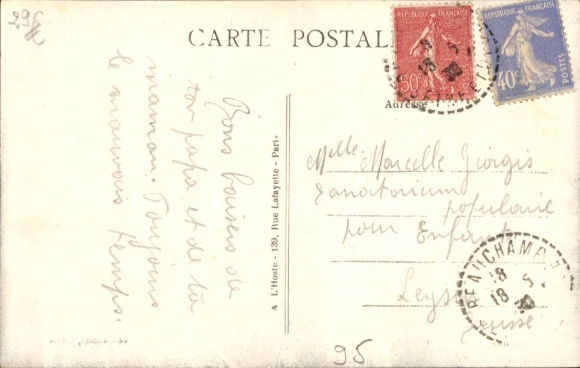 296
CARTE POSTALE
RÉPUBLIQUE FRANÇAISE
50c
RÉPUBLIQUE FRANÇAISE
40c
POSTES
Adresse
Bons baisers de
ton papa et de ta
maman. Toujours
le mauvais temps.
A L'Hoste - 139, Rue Lafayette - Paris
Melle Marcelle Giorgis
Sanatorium
populaire
pour Enfants
Leysin
Suisse
BEAUCHAMP
18
18 5
95